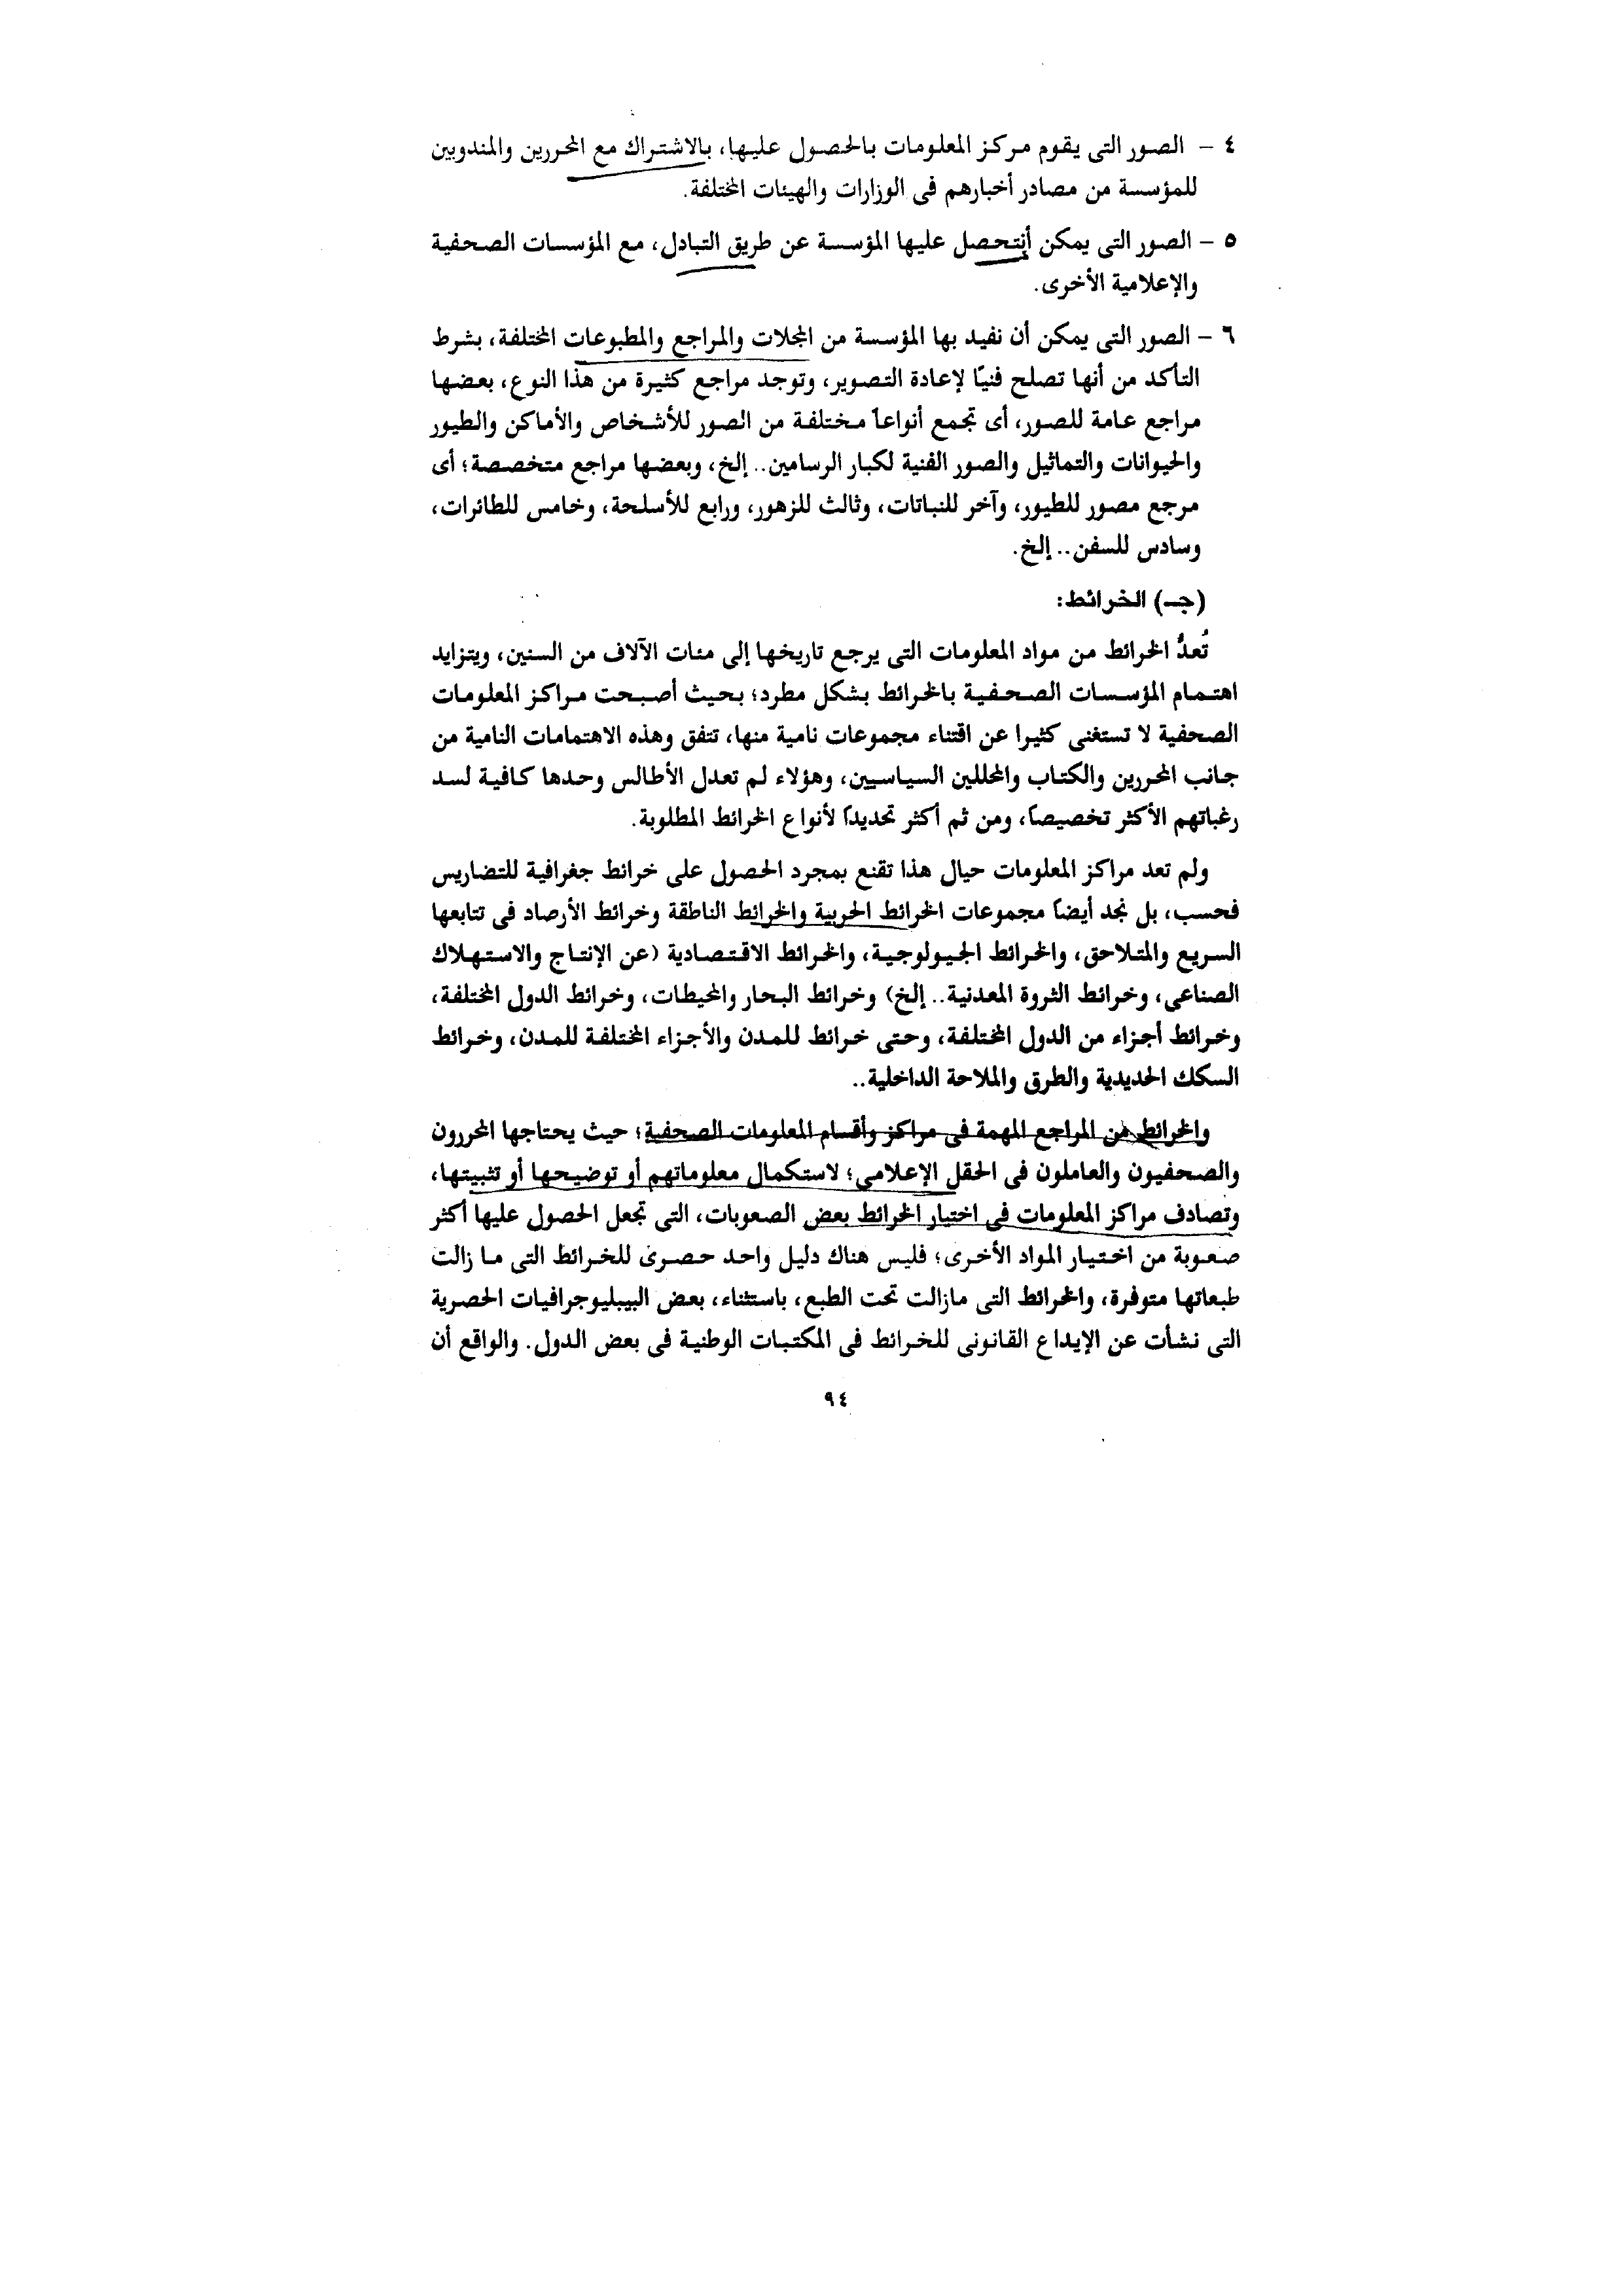 ٤ - الصور التى يقوم مركز المعلومات بالحصول عليها، بالاشتراك مع المحررين والمندوبين
للمؤسسة من مصادر أخبارهم فى الوزارات والهيئات المختلفة.
٥ - الصور التى يمكن أنتحصل عليها المؤسسة عن طريق التبادل، مع المؤسسات الصحفية
والإعلامية الأخرى.
٦ - الصور التى يمكن أن نفيد بها المؤسسة من المجلات والمراجع والمطبوعات المختلفة، بشرط
التأكد من أنها تصلح فنيًا لإعادة التصوير، وتوجد مراجع كثيرة من هذا النوع، بعضها
مراجع عامة للصور، أى تجمع أنواعاً مختلفة من الصور للأشخاص والأماكن والطيور
والحيوانات والتماثيل والصور الفنية لكبار الرسامين.. إلخ، وبعضها مراجع متخصصة؛ أى
مرجع مصور للطيور، وآخر للنباتات، وثالث للزهور، ورابع للأسلحة، وخامس للطائرات،
وسادس للسفن.. إلخ.
(جـ) الخرائط:
تُعدُّ الخرائط من مواد المعلومات التى يرجع تاريخها إلى مئات الآلاف من السنين، ويتزايد
اهتمام المؤسسات الصحفية بالخرائط بشكل مطرد؛ بحيث أصبحت مراكز المعلومات
الصحفية لا تستغنى كثيرا عن اقتناء مجموعات نامية منها، تتفق وهذه الاهتمامات النامية من
جانب المحررين والكتاب والمحللين السياسيين، وهؤلاء لم تعدل الأطالس وحدها كافية لسد
رغباتهم الأكثر تخصيصاً، ومن ثم أكثر تحديداً لأنواع الخرائط المطلوبة.
ولم تعد مراكز المعلومات حيال هذا تقنع بمجرد الحصول على خرائط جغرافية للتضاريس
فحسب، بل نجد أيضاً مجموعات الخرائط الحربية والخرائط الناطقة وخرائط الأرصاد فى تتابعها
السريع والمتلاحق، والخرائط الجيولوجية، والخرائط الاقتصادية (عن الإنتاج والاستهلاك
الصناعى، وخرائط الثروة المعدنية.. إلخ) وخرائط البحار والمحيطات، وخرائط الدول المختلفة،
وخرائط أجزاء من الدول المختلفة، وحتى خرائط للمدن والأجزاء المختلفة للمدن، وخرائط
السكك الحديدية والطرق والملاحة الداخلية..
والخرائط من المراجع المهمة فى مراكز وأقسام المعلومات الصحفية؛ حيث يحتاجها المحررون
والصحفيون والعاملون فى الحقل الإعلامى؛ لاستكمال معلوماتهم أو توضيحها أو تثبيتها،
وتصادف مراكز المعلومات فى اختيار الخرائط بعض الصعوبات، التى تجعل الحصول عليها أكثر
صعوبة من اختيار المواد الأخرى؛ فليس هناك دليل واحد حصرى للخرائط التى ما زالت
طبعاتها متوفرة، والخرائط التى مازالت تحت الطبع، باستثناء، بعض الببليوجرافيات الحصرية
التى نشأت عن الإيداع القانونى للخرائط فى المكتبات الوطنية فى بعض الدول. والواقع أن
٩٤